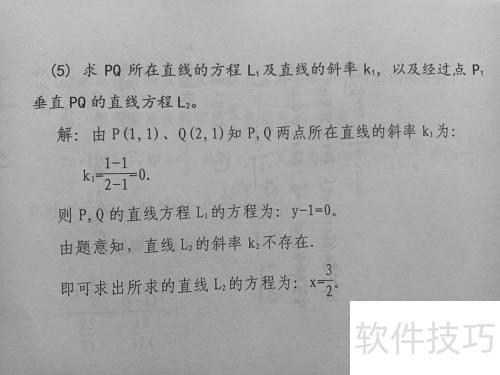 (5) 求 PQ 所在直线的方程 L₁及直线的斜率 k₁，以及经过点 P₁
垂直 PQ 的直线方程 L₂。
解：由 P(1,1)、Q(2,1)知 P,Q 两点所在直线的斜率 k₁为：
k₁=\frac{1-1}{2-1}=0.
则 P,Q 的直线方程 L₁的方程为：y-1=0。
由题意知，直线 L₂的斜率 k₂不存在.
即可求出所求的直线 L₂的方程为：x=\frac{3}{2}。
软件技巧